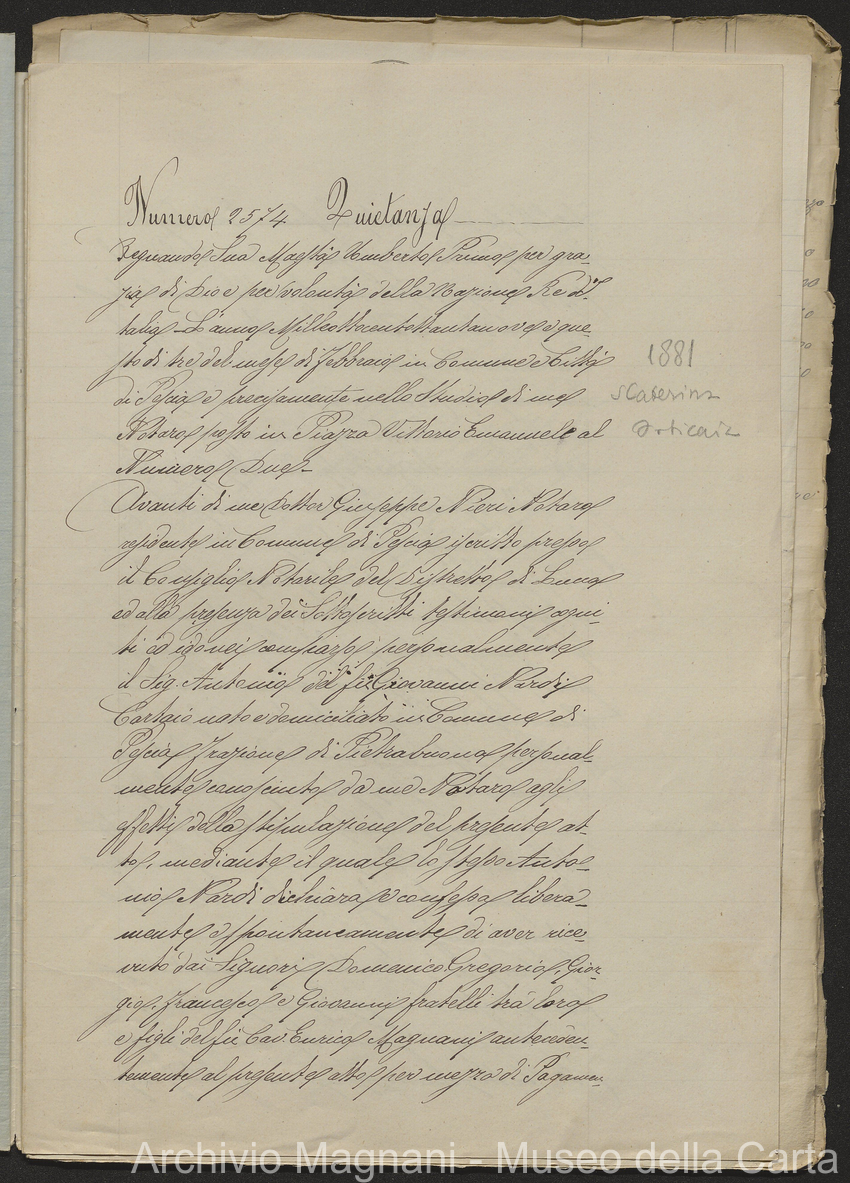 Numero 2574. Quietanza
Regnando Sua Maestà Umberto Primo per gra-
zia di Dio e per volontà della Nazione Re d'I-
talia - L'anno Milleottocentottantanove e que-
sto dì tre del mese di Febbraio in Comune e Città
di Pescia e precisamente nello Studio di me
Notaro posto in Piazza Vittorio Emanuele al
Numero Due -
Avanti di me Dottor Giuseppe Nieri Notaro
residente in Comune di Pescia iscritto presso
il Consiglio Notarile del Distretto di Lucca
ed alla presenza dei Sottoscritti testimoni cogni-
ti ed idonei comparso è personalmente
il Sig. Antonio del fù Giovanni Nardi
Cartaio nato e domiciliato in Comune di
Pescia frazione di Pietrabuona personal-
mente conosciuto da me Notaro agli
effetti della stipulazione del presente at-
to, mediante il quale lo stesso Anto-
nio Nardi dichiara e confessa libera-
mente e spontaneamente di aver rice-
vuto dai Signori Domenico, Gregorio, Gior-
gio, Francesco e Giovanni fratelli trà loro
e figli del fù Cav. Enrico Magnani anteceden-
temente al presente atto per mezzo di Pagamen-
1881
S Caterina
Orticaia
Archivio Magnani - Museo della Carta